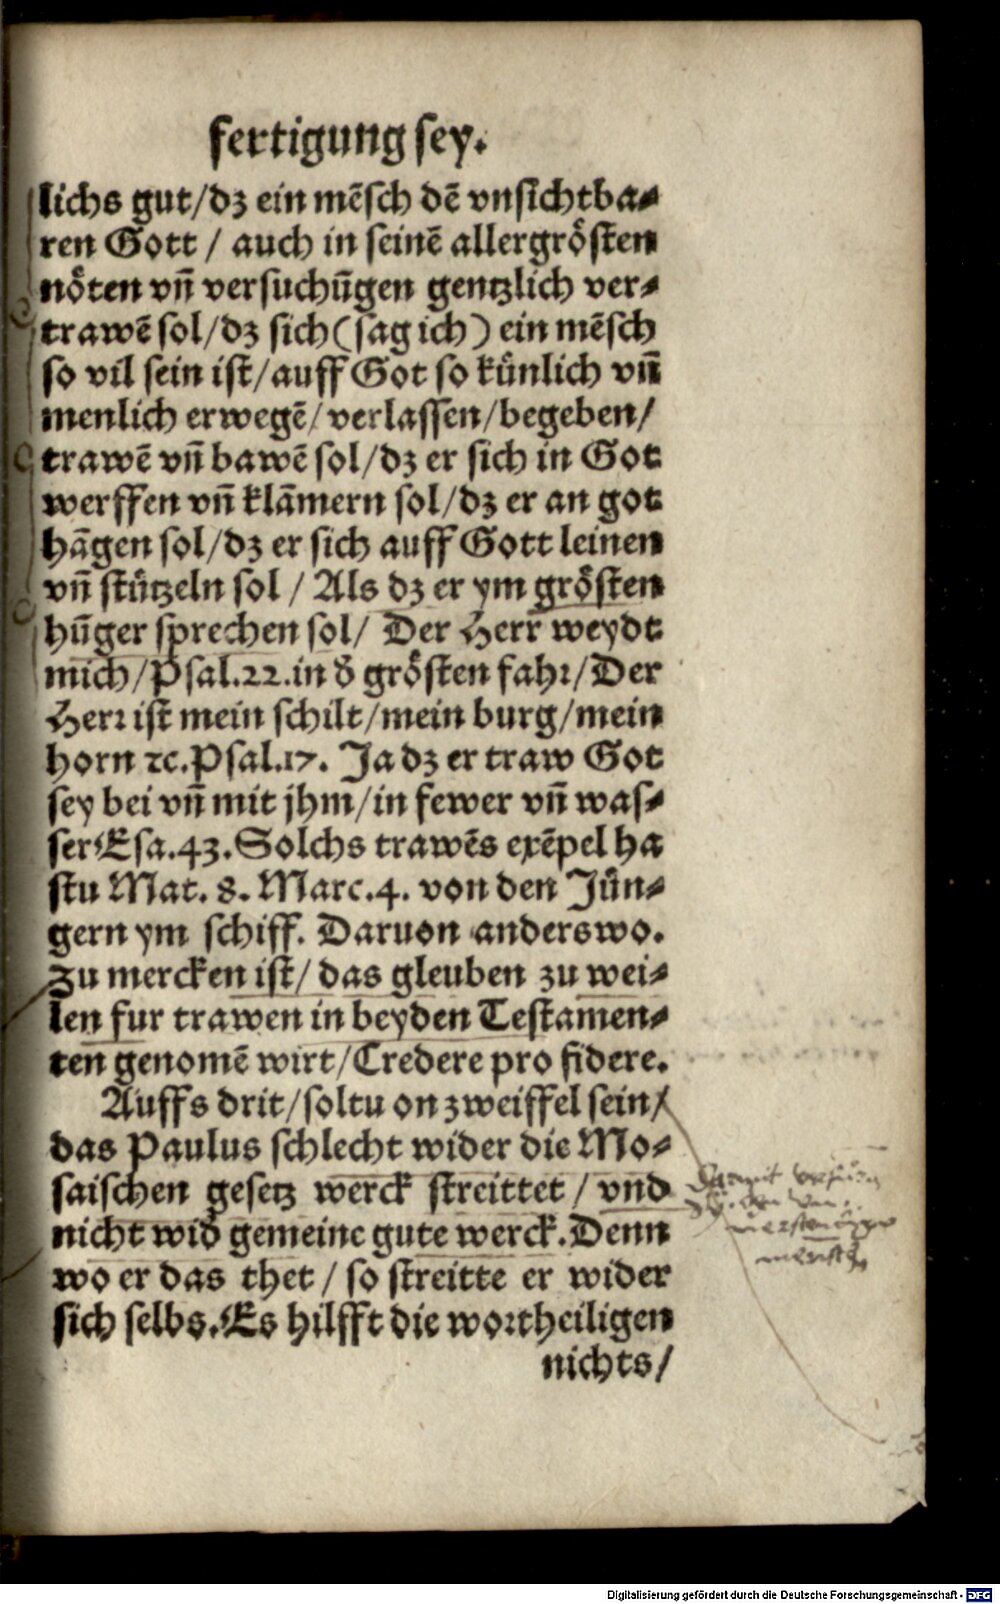 fertigung sey.
lichs gut/dz ein mēsch dē vnsichtba-
ren Gott / auch in seinē allergrösten
nöten vn̄ versuchūgen gentzlich ver-
trawē sol/dz sich (sag ich) ein mēsch
so vil sein ist/auff Got so künlich vn̄
menlich erwegē/verlassen/begeben/
trawē vn̄ bawē sol/dz er sich in Got
werffen vn̄ klāmern sol/dz er an got
hāgen sol/dz er sich auff Gott leinen
vn̄ stützeln sol / Als dz er ym grösten
hūger sprechen sol/ Der Herr weydt
mich/Psal.22.in d̄ grösten fahr/Der
Herr ist mein schilt/mein burg/mein
horn ꝛc.Psal.17. Ja dz er traw Got
sey bei vn̄ mit jhm/in fewer vn̄ was-
ser Esa.43. Solchs trawēs exēpel ha
stu Mat. 8. Marc.4. von den Jün-
gern ym schiff. Daruon anderswo.
Zu mercken ist/ das gleuben zu wei-
len fur trawen in beyden Testamen-
ten genomē wirt/Credere pro fidere.
Auffs drit/soltu on zweiffel sein/
das Paulus schlecht wider die Mo-
saischen gesetz werck streittet / vnd
nicht wid̄ gemeine gute werck. Denn
wo er das thet / so streitte er wider
sich selbs. Es hilfft die wortheiligen
nichts/
Digitalisierung gefördert durch die Deutsche Forschungsgemeinschaft - DFG